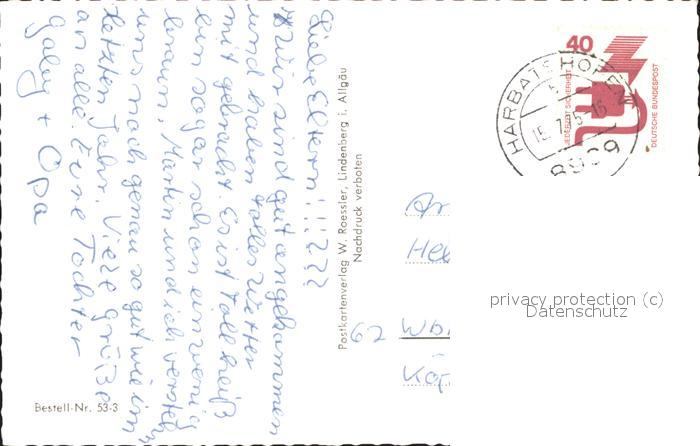 Liebe Eltern!!!???
Wir sind gut angekommen
und haben tolles Wetter
mit gebracht. Es ist toll heiß
bin sogar schon ein wenig
braun, Martin und ich versteh
uns noch genau so gut wie im
letzten Jahr. Viele Grüße
an alle. Eure Tochter
Gaby + Opa
Postkartenverlag W. Roessler, Lindenberg i. Allgäu
Nachdruck verboten
Bestell-Nr. 53-3
40
JEDERZEIT SICHERHEIT
DEUTSCHE BUNDESPOST
HARBATSHOFEN
8999
An
62 Wb
privacy protection (c)
Datenschutz